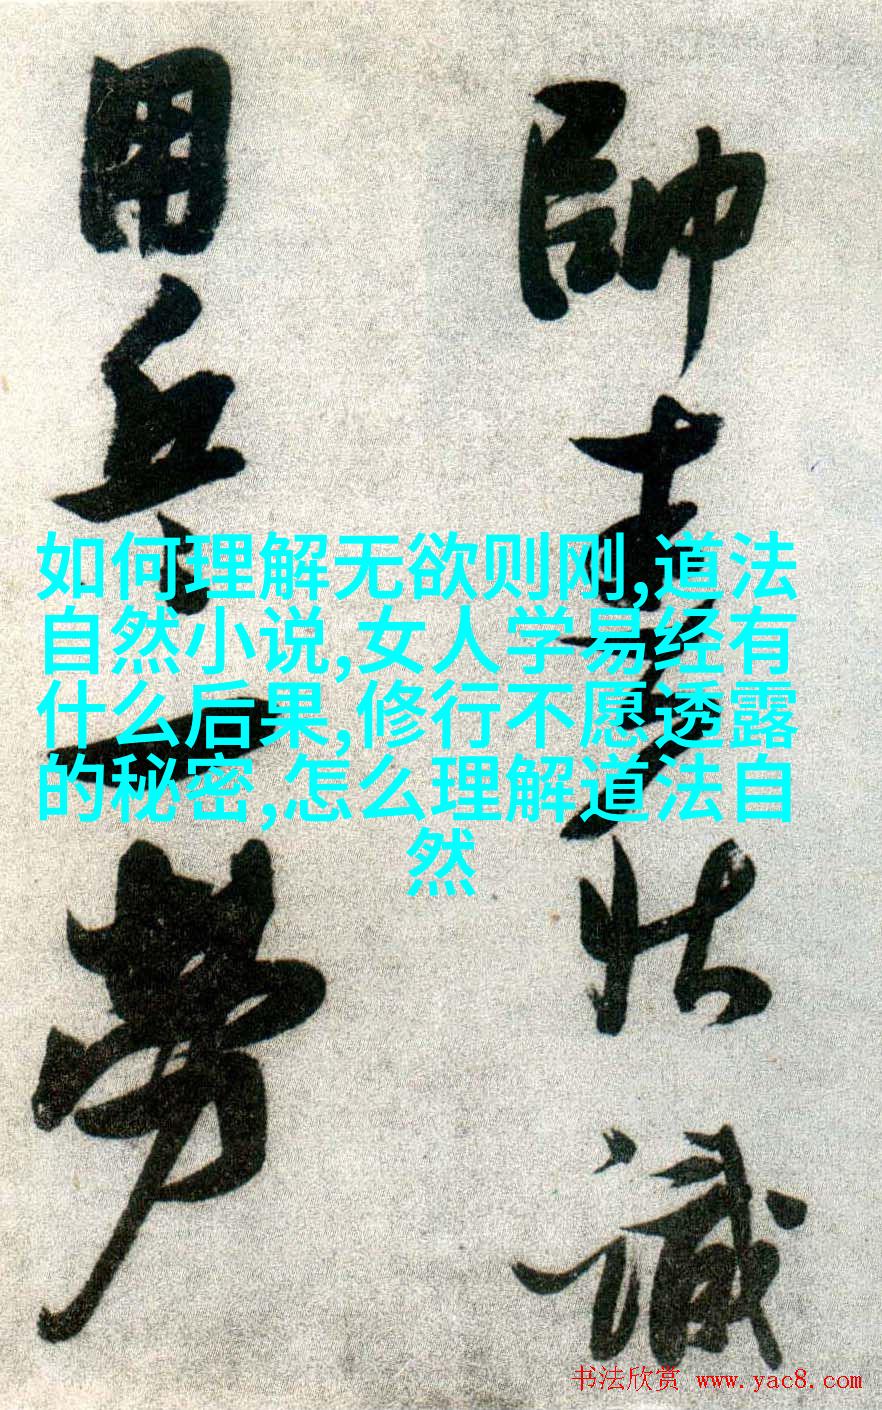 帥壯識
用兵一勞
如何理解无欲则刚,道法
自然小说,女人学易经有
什么后果,修行不愿透露
的秘密,怎么理解道法自
然
书法欣赏 www.yac8.com